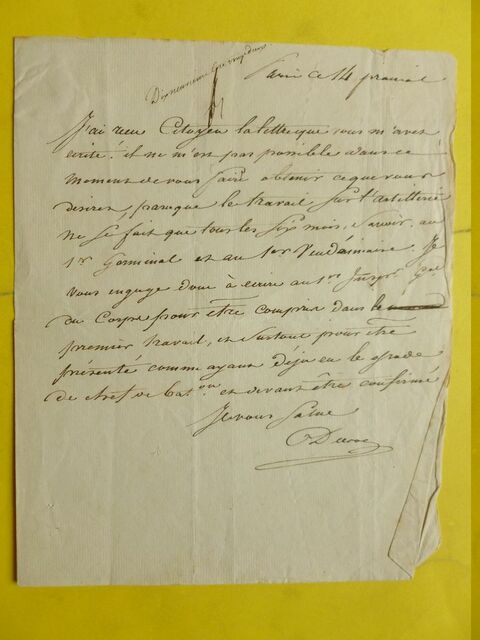 Paris ce 14 prairial
J'ai reçu Citoyen la lettre que vous m'avez
écrite. il ne m'est pas possible dans ce
moment de vous faire obtenir ce que vous
desirez, parceque le travail sur l'artillerie
ne se fait que tous les six mois, savoir, au
1er Germinal et au 1er Vendémiaire. Je
vous engage donc à écrire au 1er Inspr Gal
du Corps pour être compris dans le
premier travail, et surtout pour être
présenté comme ayant déjà eu le grade
de chef de Baton et devant être confirmé
Je vous salue
Duroc